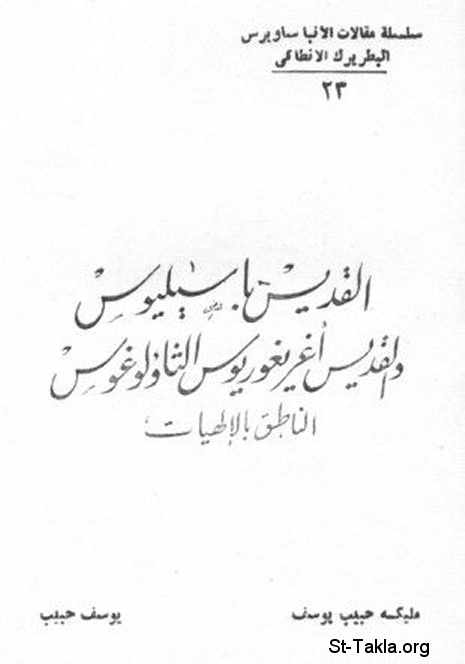 سلسلة مقالات الأنبا ساويرس
البطريرك الانطاكى
٢٣
القديس باسيليوس
والقديس أغريغوريوس الثاؤلوغوس
الناطق بالإلهيات
مليكه حبيب يوسف
يوسف حبيب
St-Takla.org